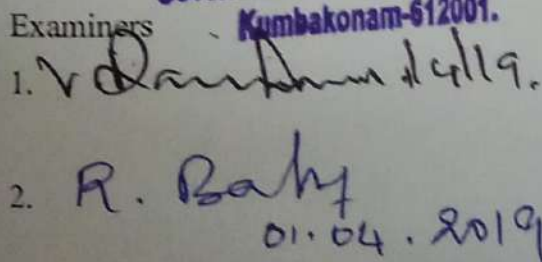 Examiners
Kumbakonam-612001.
1. 1/4/19.
2. R. Baby
01.04.2019